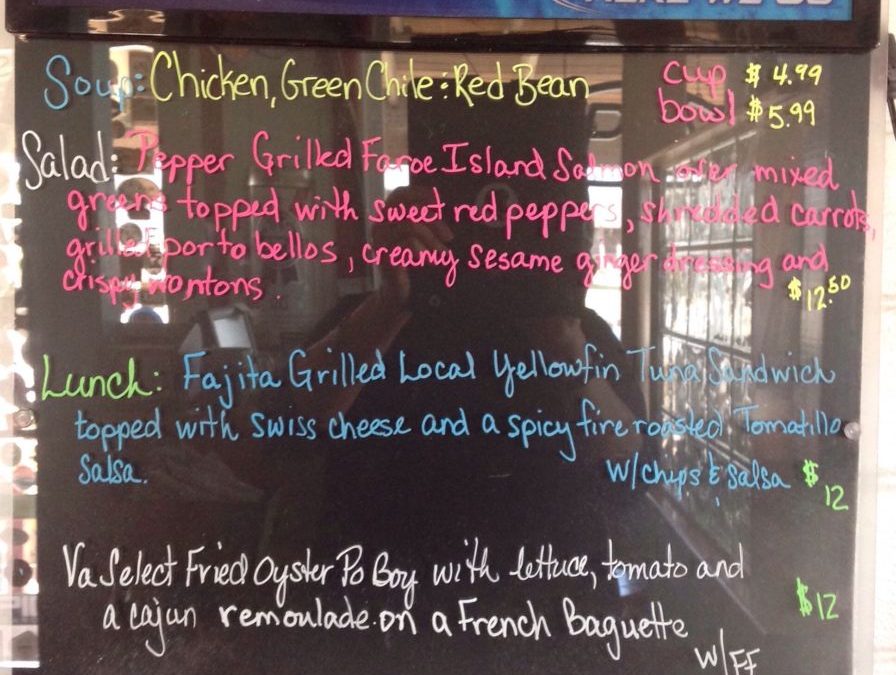 HERE WE GO
Soup: Chicken, Green Chile : Red Bean cup $4.99
bowl $5.99
Salad: Pepper Grilled Faroe Island Salmon over mixed
greens topped with sweet red peppers, shredded carrots,
grilled porto bellos, creamy sesame ginger dressing and
crispy wontons. $12.50
Lunch: Fajita Grilled Local Yellowfin Tuna Sandwich
topped with swiss cheese and a spicy fire roasted Tomatillo
Salsa. w/chips & salsa $12
Va Select Fried Oyster Po Boy with lettuce, tomato and
a cajun remoulade on a French Baguette $12
w/FF